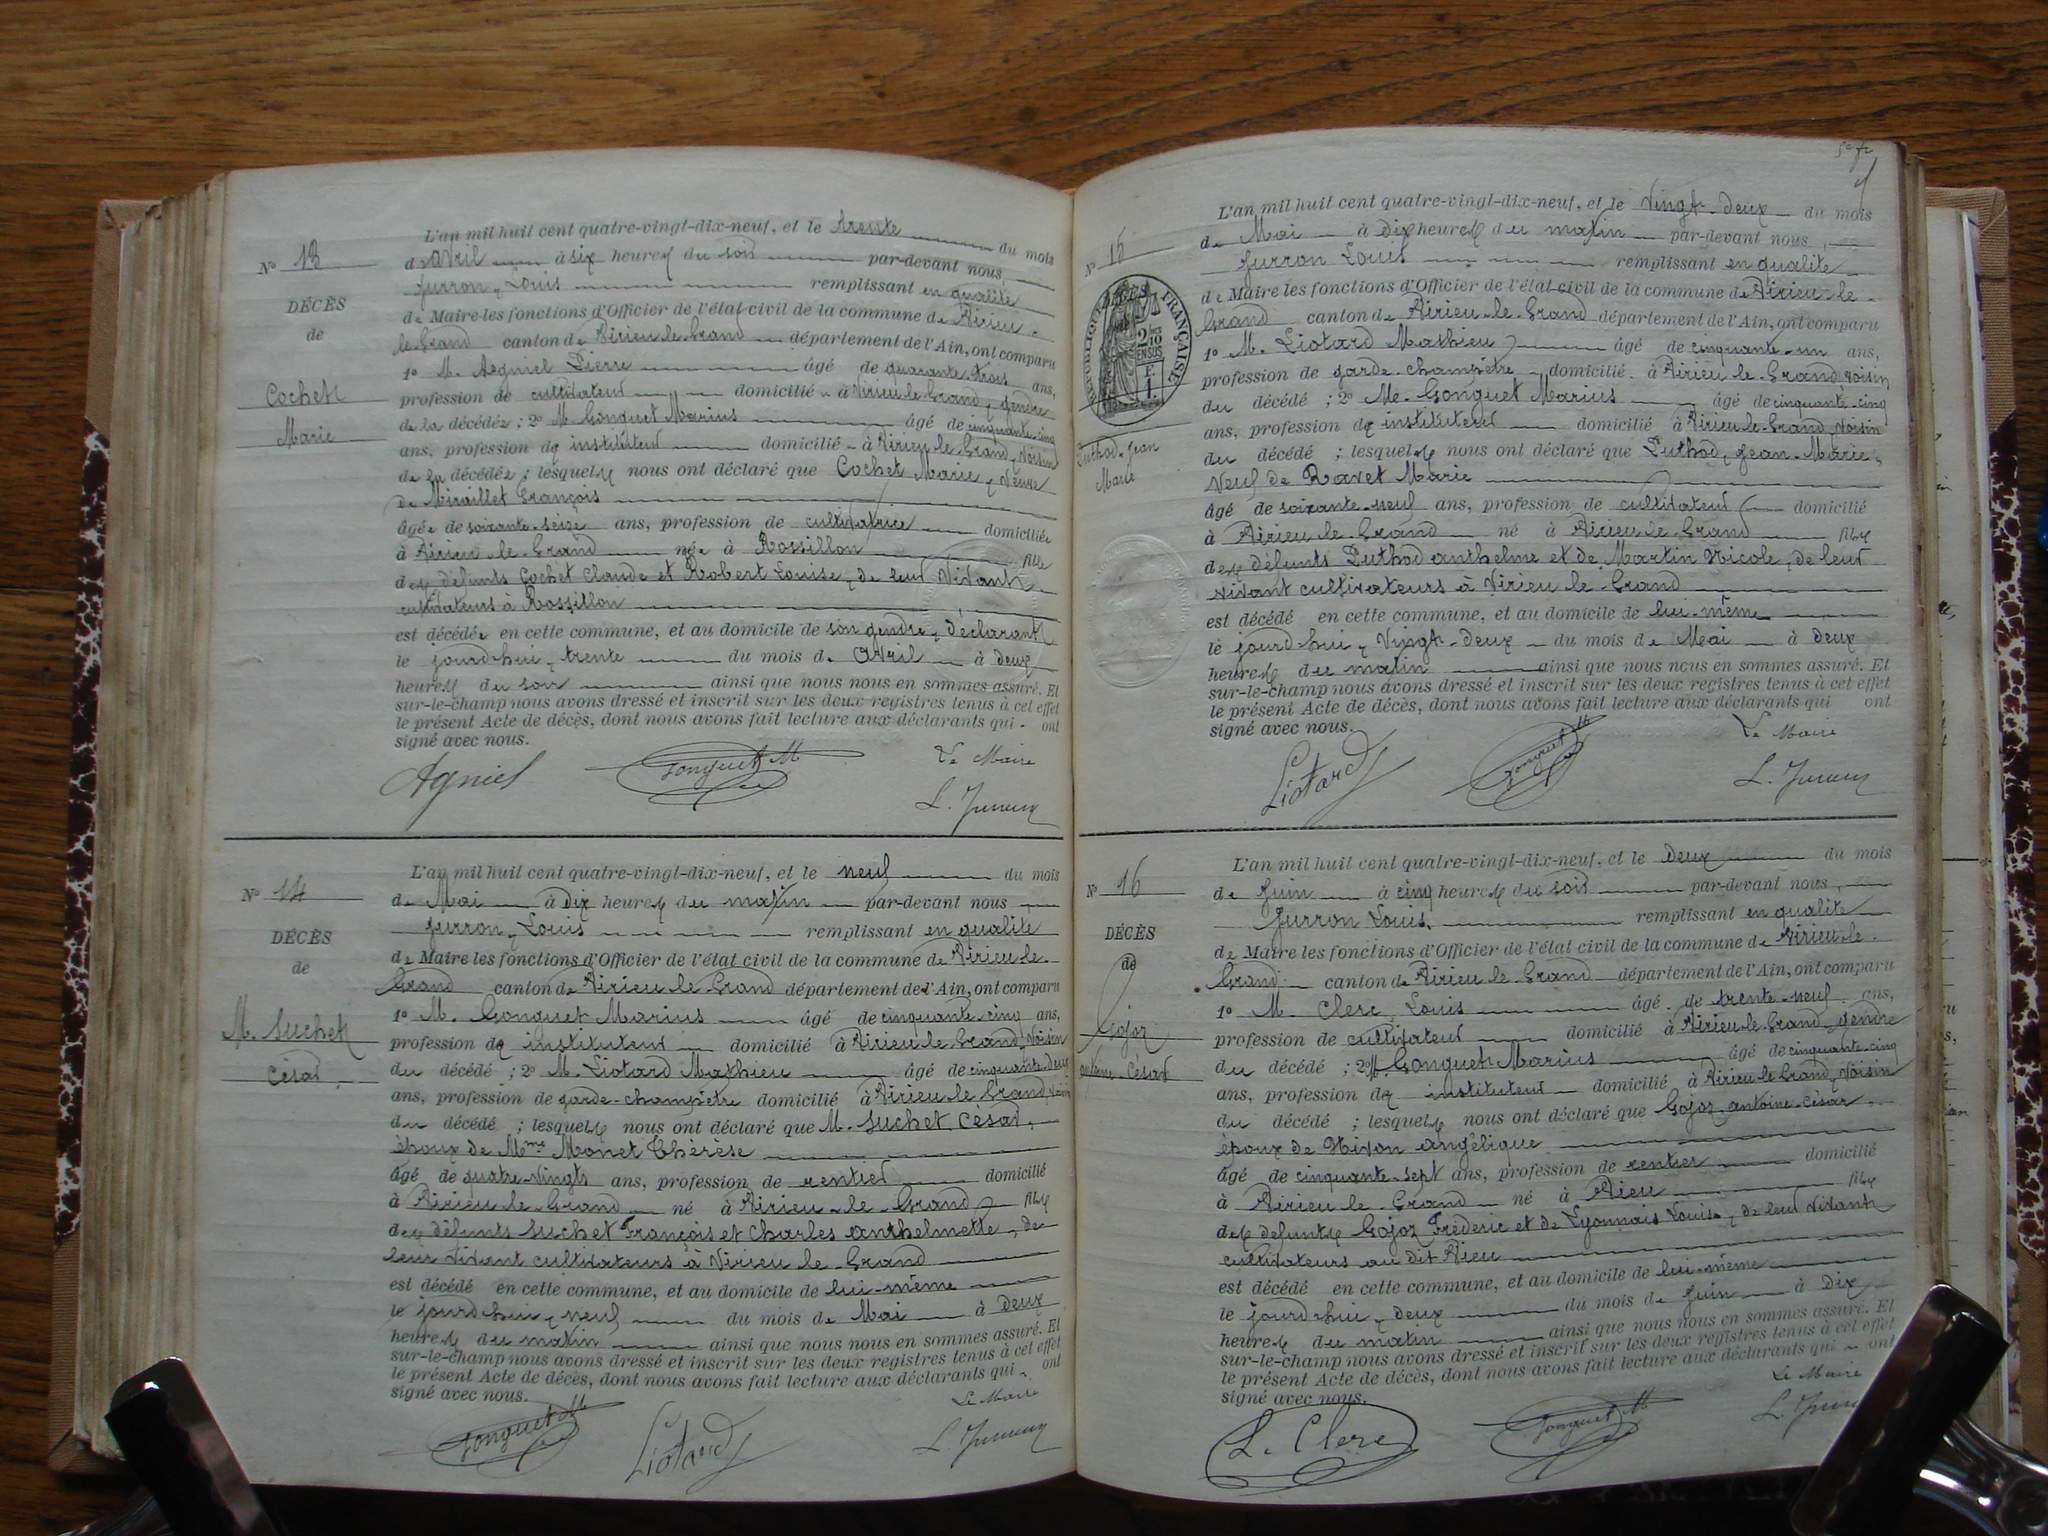 5e fr
Nº 13
DÉCÈS
de
Cochet
Marie
L'an mil huit cent quatre-vingt-dix-neuf, et le trente du mois
d'avril à six heures du soir par-devant nous
Jurron, Louis remplissant en qualité
de Maire les fonctions d'Officier de l'état civil de la commune de Virieu-
le-Grand canton de Virieu-le-Grand département de l'Ain, ont comparu
1º M. Agniel Pierre âgé de quarante-trois ans,
profession de cultivateur domicilié à Virieu le Grand, gendre
de la décédée ; 2º M. Gonguet Marius âgé de cinquante-cinq
ans, profession de instituteur domicilié à Virieu-le-Grand, voisin
de la décédée ; lesquels nous ont déclaré que Cochet Marie, Veuve
de Miraillet François
âgée de soixante-seize ans, profession de cultivatrice domiciliée
à Virieu-le-Grand née à Rossillon fille
des défunts Cochet Claude et Robert Louise, de leur vivant
cultivateurs à Rossillon
est décédée en cette commune, et au domicile de son gendre, déclarant
le jourd'hui, trente du mois d'avril à deux
heures du soir ainsi que nous nous en sommes assuré. Et
sur-le-champ nous avons dressé et inscrit sur les deux registres tenus à cet effet
le présent Acte de décès, dont nous avons fait lecture aux déclarants qui ont
signé avec nous.
Agniel Gonguet M Le Maire
L. Jurron
Nº 14
DÉCÈS
de
M. Suchet
César
L'an mil huit cent quatre-vingt-dix-neuf, et le neuf du mois
de Mai à Dix heures du matin par-devant nous
Jurron, Louis remplissant en qualité
de Maire les fonctions d'Officier de l'état civil de la commune de Virieu le-
Grand canton de Virieu-le-Grand département de l'Ain, ont comparu
1º M. Gonguet Marius âgé de cinquante cinq ans,
profession de instituteur domicilié à Virieu le Grand, voisin
du décédé ; 2º M. Liotard Mathieu âgé de cinquante-deux
ans, profession de garde-champêtre domicilié à Virieu-le Grand, voisin
du décédé ; lesquels nous ont déclaré que M. Suchet César,
époux de Mme Monet Thérèse
âgé de quatre-vingts ans, profession de rentier domicilié
à Virieu-le-Grand né à Virieu-le-Grand fils
des défunts Suchet François et Charles anthelmette, de
leur vivant cultivateurs à Virieu le-Grand
est décédé en cette commune, et au domicile de lui-même
le jourd'hui, neuf du mois de Mai à deux
heures du matin ainsi que nous nous en sommes assuré. Et
sur-le-champ nous avons dressé et inscrit sur les deux registres tenus à cet effet
le présent Acte de décès, dont nous avons fait lecture aux déclarants qui ont
signé avec nous.
Gonguet M Liotard Le Maire
L. Jurron
Nº 15
RÉPUBLIQUE FRANÇAISE
2/10
EN SUS
F.
1.
Puthod-Jean
Marie
L'an mil huit cent quatre-vingt-dix-neuf, et le Vingt-deux du mois
de Mai à Dix heures du matin par-devant nous,
Jurron Louis remplissant en qualité
de Maire les fonctions d'Officier de l'état civil de la commune de Virieu-le-
Grand canton de Virieu-le-Grand département de l'Ain, ont comparu
1º M. Liotard Mathieu âgé de cinquante-un ans,
profession de garde-champêtre domicilié à Virieu-le-Grand, voisin
du décédé ; 2º Me. Gonguet Marius âgé de cinquante-cinq
ans, profession de instituteur domicilié à Virieu-le-Grand, voisin
du décédé ; lesquels nous ont déclaré que Puthod, Jean-Marie,
Veuf de Ravet Marie
âgé de soixante-neuf ans, profession de cultivateur domicilié
à Virieu-le-Grand né à Virieu-le-Grand fils
des défunts Puthod anthelme et de Martin Nicole, de leur
vivant cultivateurs à Virieu le-Grand
est décédé en cette commune, et au domicile de lui-même
le jourd'hui, Vingt-deux du mois de Mai à deux
heures du matin ainsi que nous nous en sommes assuré. Et
sur-le-champ nous avons dressé et inscrit sur les deux registres tenus à cet effet
le présent Acte de décès, dont nous avons fait lecture aux déclarants qui ont
signé avec nous.
Liotard Gonguet M Le Maire
L. Jurron
Nº 16
DÉCÈS
de
Gojoz
antoine-César
L'an mil huit cent quatre-vingt-dix-neuf, et le Deux du mois
de Juin à cinq heures du soir par-devant nous,
Jurron Louis, remplissant en qualité
de Maire les fonctions d'Officier de l'état civil de la commune de Virieu le-
Grand canton de Virieu-le-Grand département de l'Ain, ont comparu
1º M. Clerc, Louis âgé de trente-neuf ans,
profession de cultivateur domicilié à Virieu-le-Grand, gendre
du décédé ; 2º M Gonguet Marius âgé de cinquante-cinq
ans, profession de instituteur domicilié à Virieu-le-Grand, voisin
du décédé ; lesquels nous ont déclaré que Gojoz antoine-César
époux de Nivon angélique
âgé de cinquante-sept ans, profession de rentier domicilié
à Virieu-le-Grand né à Vieu fils
des défunts Gojoz Fréderic et de Lyonnais Louise, de leur vivant
cultivateurs au dit Vieu
est décédé en cette commune, et au domicile de lui-même
le jourd'hui, deux du mois de Juin à Dix
heures du matin ainsi que nous nous en sommes assuré. Et
sur-le-champ nous avons dressé et inscrit sur les deux registres tenus à cet effet
le présent Acte de décès, dont nous avons fait lecture aux déclarants qui ont
signé avec nous.
L. Clerc Gonguet M. Le Maire
L. Jurron